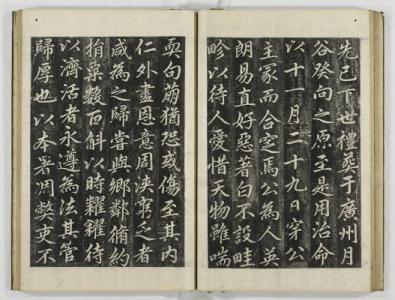 先已下世禮葬于廣州月
谷癸向之原至是用治命
以十一月二十九日宇公
主冢而合窆焉公為人英
朗易直好惡著白不設畦
畛以待人愛惜天物雖喘
耎句萠猶恐或傷至其内
仁外盡恩意周浹窮乏者
咸為之歸嘗與鄉鄰脩約
捐粟數百斛以時糶糴待
以濟活者永遵為法其管
歸厚也以本署凋弊吏不